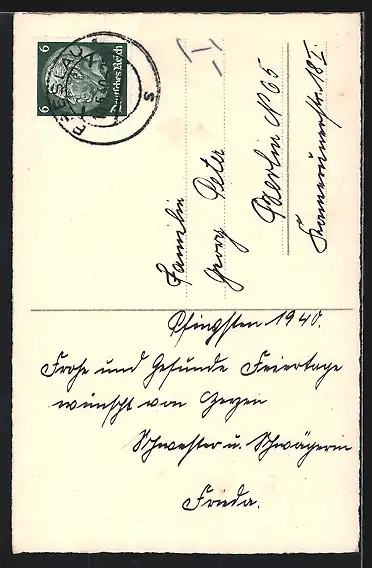 6 Deutsches Reich 6
BRESLAU
s
Familie
Georg Peter
Berlin N 65
Kamerunerstr. 18 I.
Pfingsten 1940.
Frohe und Gesunde Feiertage
wünscht von Herzen
Schwester u. Schwägerin
Frieda.